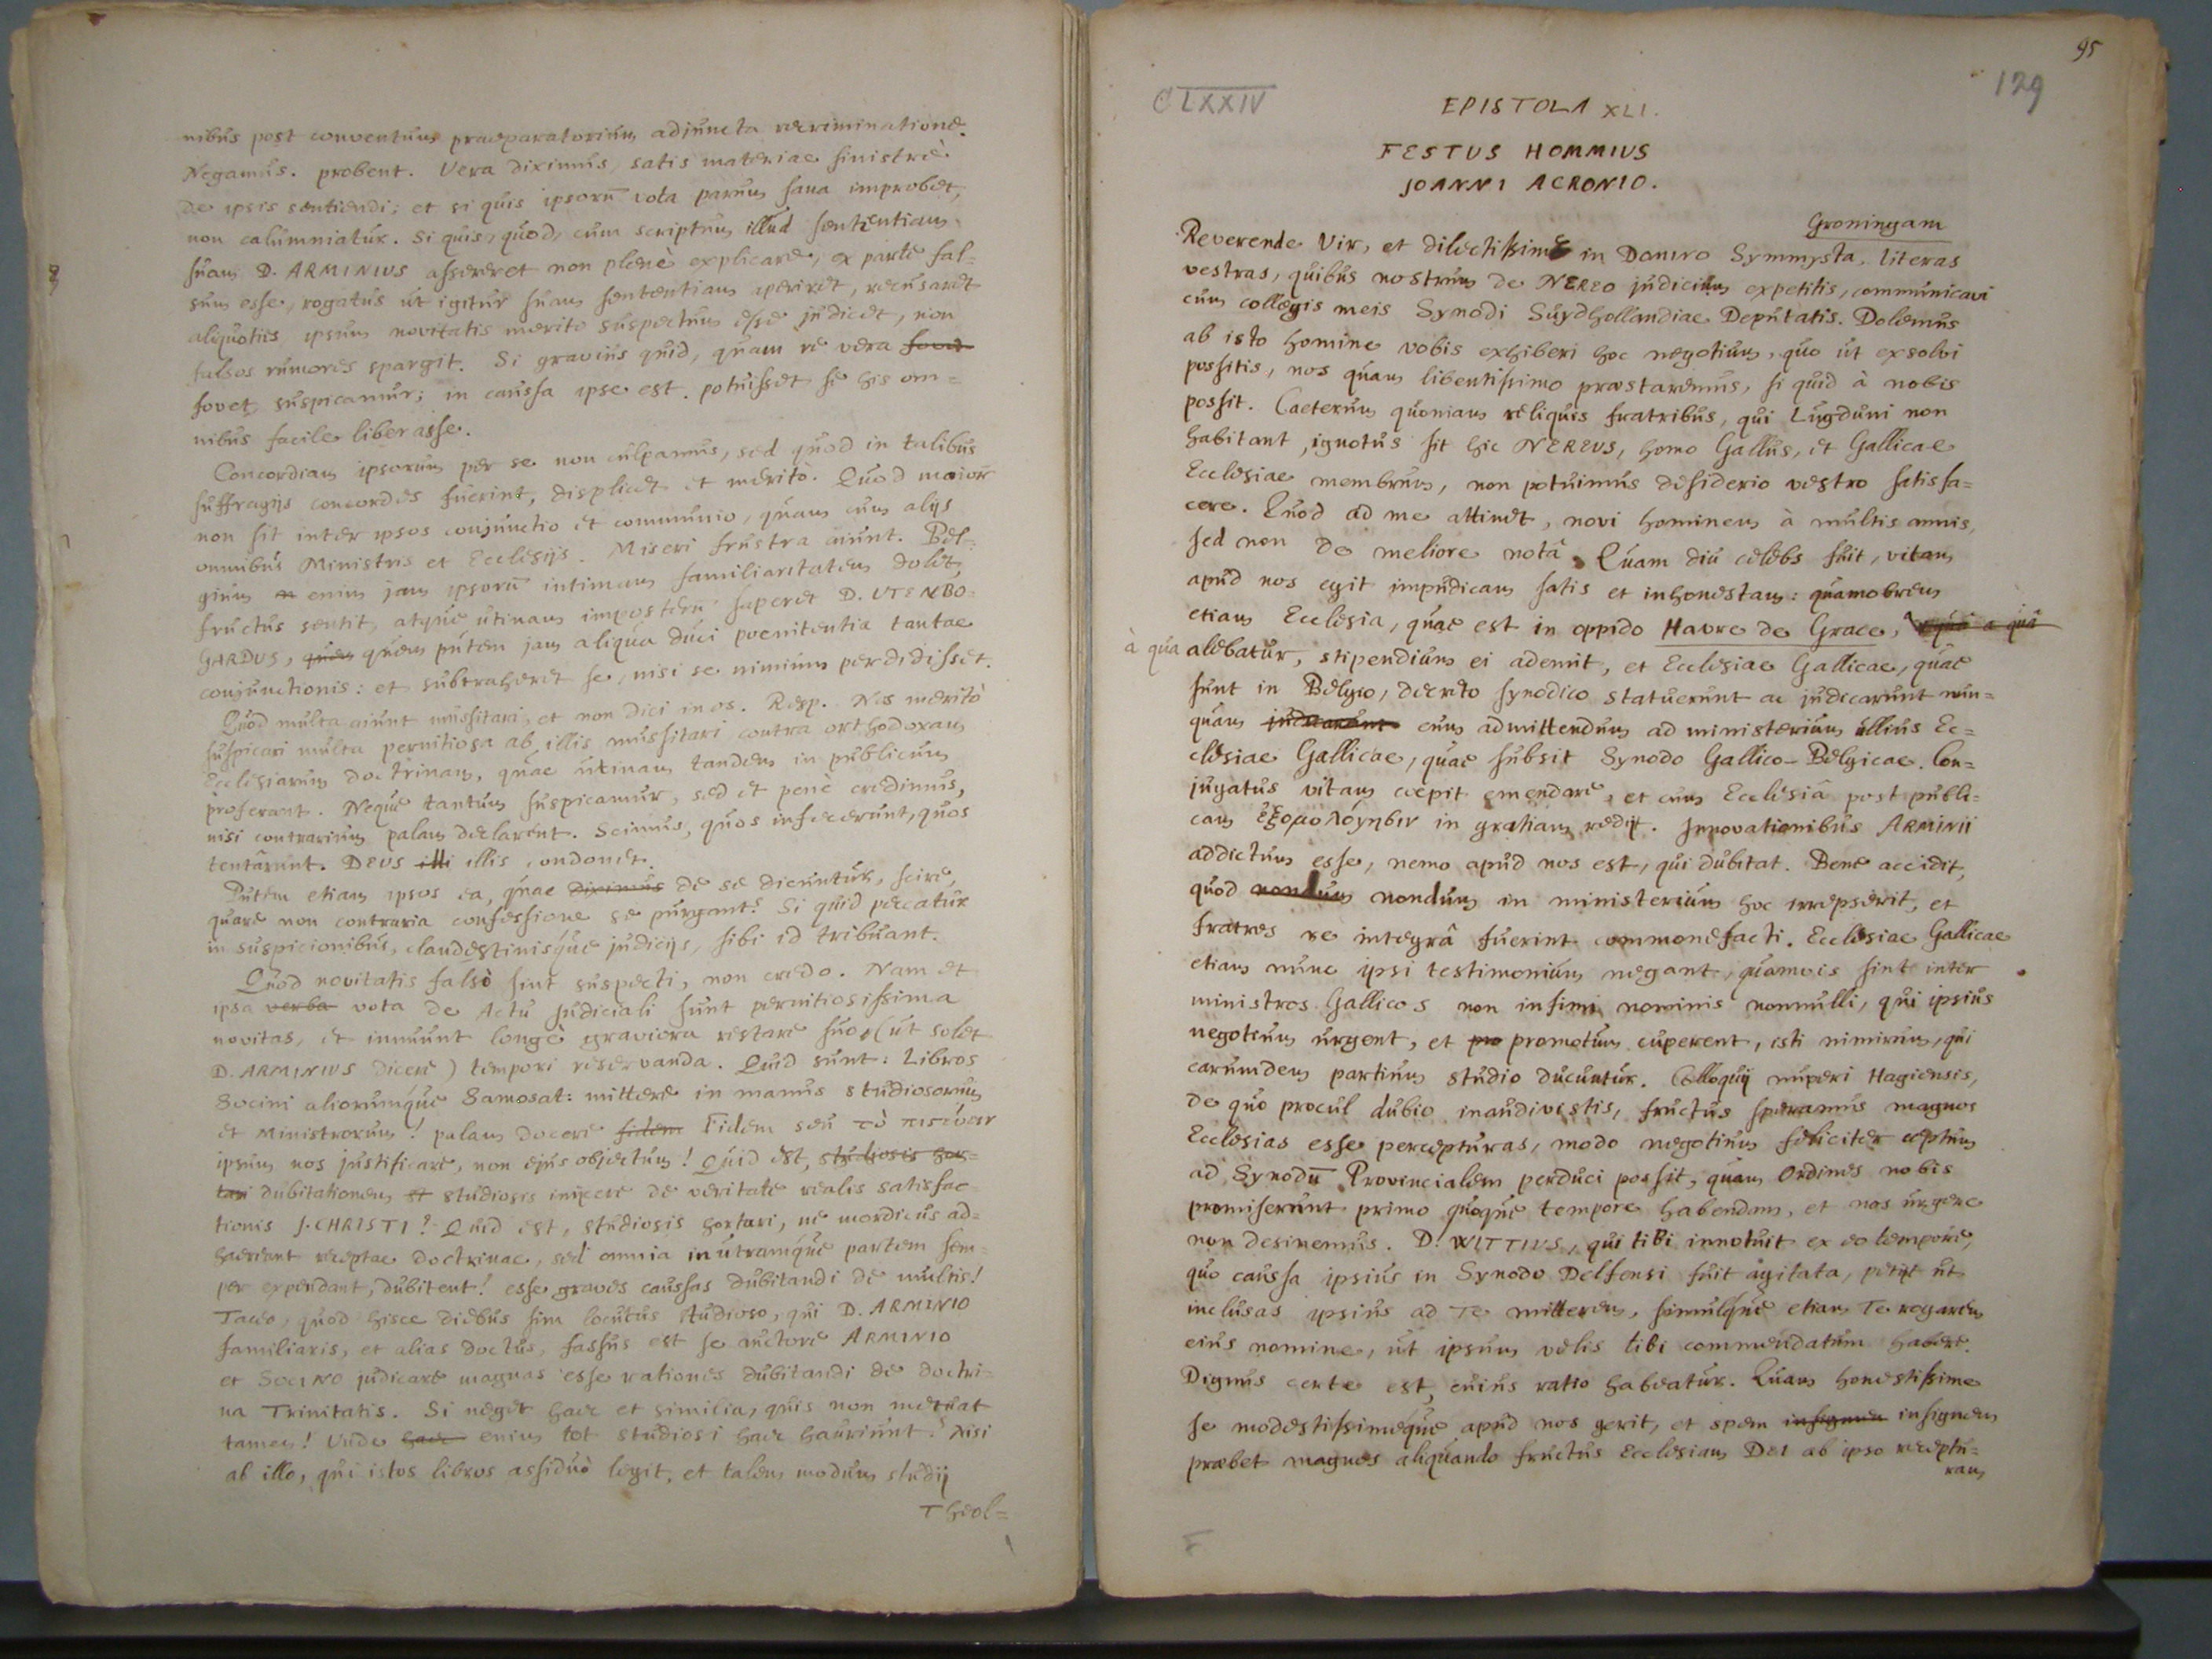 nibus post conventum praeparatorium adjuncta recriminatione.
Negamus. probent. Vera diximus, satis materiae sinistrè
de ipsis sentiendi; et si quis ipsorū vota parum sana improbet,
non calumniatur. Si quis, quod, cum scriptum illud sententiam
suam D. ARMINIUS assereret non plenè explicare, ex parte fal=
sum esse, rogatus ut igitur suam sententiam aperiret, recusaret
aliquoties ipsum novitatis merito suspectum esse judicet, non
falsos rumores spargit. Si gravius quid, quam re vera fovet
fovet, suspicamur; in caussa ipse est. potuisset se his om=
nibus facile liberasse.
Concordiam ipsorum per se non culpamus, sed quod in talibus
suffragijs concordes fuerint, displicet et meritò. Quod maior
non sit inter ipsos conjunctio et communio, quam cum alijs
omnibus Ministris et Ecclesijs. Miseri frustra aiunt. Bel=
gium enim jam ipsorū intimam familiaritatem dolet,
fructus sentit, atque utinam imposterū saperet D. UTENBO=
GARDUS, quem quem putem jam aliqua duci poenitentia tantae
conjunctionis: et subtraheret se, nisi se nimium perdidisset.
Quod multa aiunt mussitari, et non dici in os. Resp. Nos meritò
suspicari multa pernitiosa ab illis mussitari contra orthodoxam
Ecclesiarum doctrinam, quae utinam tandem in publicum
proferant. Neque tantum suspicamur, sed et penè credimus,
nisi contrarium palam declarent. Scimus, quos infecerunt, quos
tentârunt. DEUS illi illis condonet.
Putem etiam ipsos ea, quae diximus de se dicuntur, scire,
quare non contraria confessione se purgant? Si quid peccatur
in suspicionibus, clandestinisque judicijs, sibi id tribuant.
Quod novitatis falsò sint suspecti, non credo. Nam et
ipsa verba vota de Actu Judiciali sunt pernitiosissima
novitas, et innuunt longè graviora restare suo (ut solet
D. ARMINIUS dicere) tempori reservanda. Quid sunt: Libros
Socini aliorumque Samosat: mittere in manus studiosorum
et Ministrorum! palam docere fidem Fidem seu τὸ πιστεύειν
ipsum nos justificare, non ejus objectum! Quid est, studiosis hor=
tari dubitationem et studiosis inijcere de veritate realis satisfac
tionis J. CHRISTI? Quid est, studiosis hortari, ne mordicus ad=
haereant receptae doctrinae, sed omnia in utramque partem sem=
per expendant, dubitent! esse graves caussas dubitandi de multis!
Taceo, quod hisce diebus sim locutus studioso, qui D. ARMINIO
familiaris, et alias doctus, fassus est se auctore ARMINIO
et SOCINO judicare magnas esse rationes dubitandi de doctri=
na Trinitatis. Si neget haec et similia, quis non metuat
tamen! Unde haec enim tot studiosi haec hauriunt? Nisi
ab illo, qui istos libros assiduò legit, et talem modum studij
Theol=
95
129
CLXXIV
EPISTOLA XLI.
FESTUS HOMMIUS
JOANNI ACRONIO.
Groningam
Reverende Vir, et dilectissime in Domino Symmysta, literas
vestras, quibus nostrum de NEREO judicium expetitis, communicavi
cum collegis meis Synodi Suydhollandiae Deputatis. Dolemus
ab isto homine vobis exhiberi hoc negotium, quo ut exsolvi
possitis, nos quam libentissime praestaremus, si quid à nobis
possit. Caeterum quoniam reliquis fratribus, qui Lugduni non
habitant, ignotus sit hic NEREUS, homo Gallus, et Gallicae
Ecclesiae membrum, non potuimus desiderio vestro satisfa=
cere. Quod ad me attinet, novi hominem à multis annis,
sed non de meliore notâ. Quam diu celebs fuit, vitam
apud nos egit impudicam satis et inhonestam: quamobrem
etiam Ecclesia, quae est in oppido Havre de Grace, a quâ
à qua alebatur, stipendium ei ademit, et Ecclesiae Gallicae, quae
sunt in Belgio, decreto synodico statuerunt ac judicarunt nun=
quam judicarunt eum admittendum ad ministerium ullius Ec=
clesiae Gallicae, quae subsit Synodo Gallico-Belgicae. Con=
jugatus vitam coepit emendare, et cum Ecclesiâ post publi=
cam ἐξομολόγησιν in gratiam redijt. Innovationibus ARMINII
addictum esse, nemo apud nos est, qui dubitat. Bene accidit,
quod nondum nondum in ministerium hoc irrepserit, et
fratres re integrâ fuerint commonefacti. Ecclesiae Gallicae
etiam nunc ipsi testimonium negant, quamvis sint inter
ministros Gallicos non infimi nominis nonnulli, qui ipsius
negotium urgent, et pro promotum cuperent, isti nimirum, qui
earumdem partium studio ducuntur. Colloquij nuperi Hagiensis,
de quo procul dubio inaudivistis, fructus speramus magnos
Ecclesias esse percepturas, modo negotium feliciter ceptum
ad Synodū Provincialem perduci possit, quam Ordines nobis
promiserunt primo quoque tempore habendam, et nos urgere
non desinemus. D. WITTIUS, qui tibi innotuit ex eo tempore,
quo caussa ipsius in Synodo Delfensi fuit agitata, petijt ut
inclusas ipsius ad Te mitterem, simulque etiam Te rogarem
eius nomine, ut ipsum velis tibi commendatum habere.
Dignus certe est, cuius ratio habeatur. Quam honestissime
se modestissimeque apud nos gerit, et spem insignem insignem
praebet magnos aliquando fructus Ecclesiam DEI ab ipso receptu=
ram
F